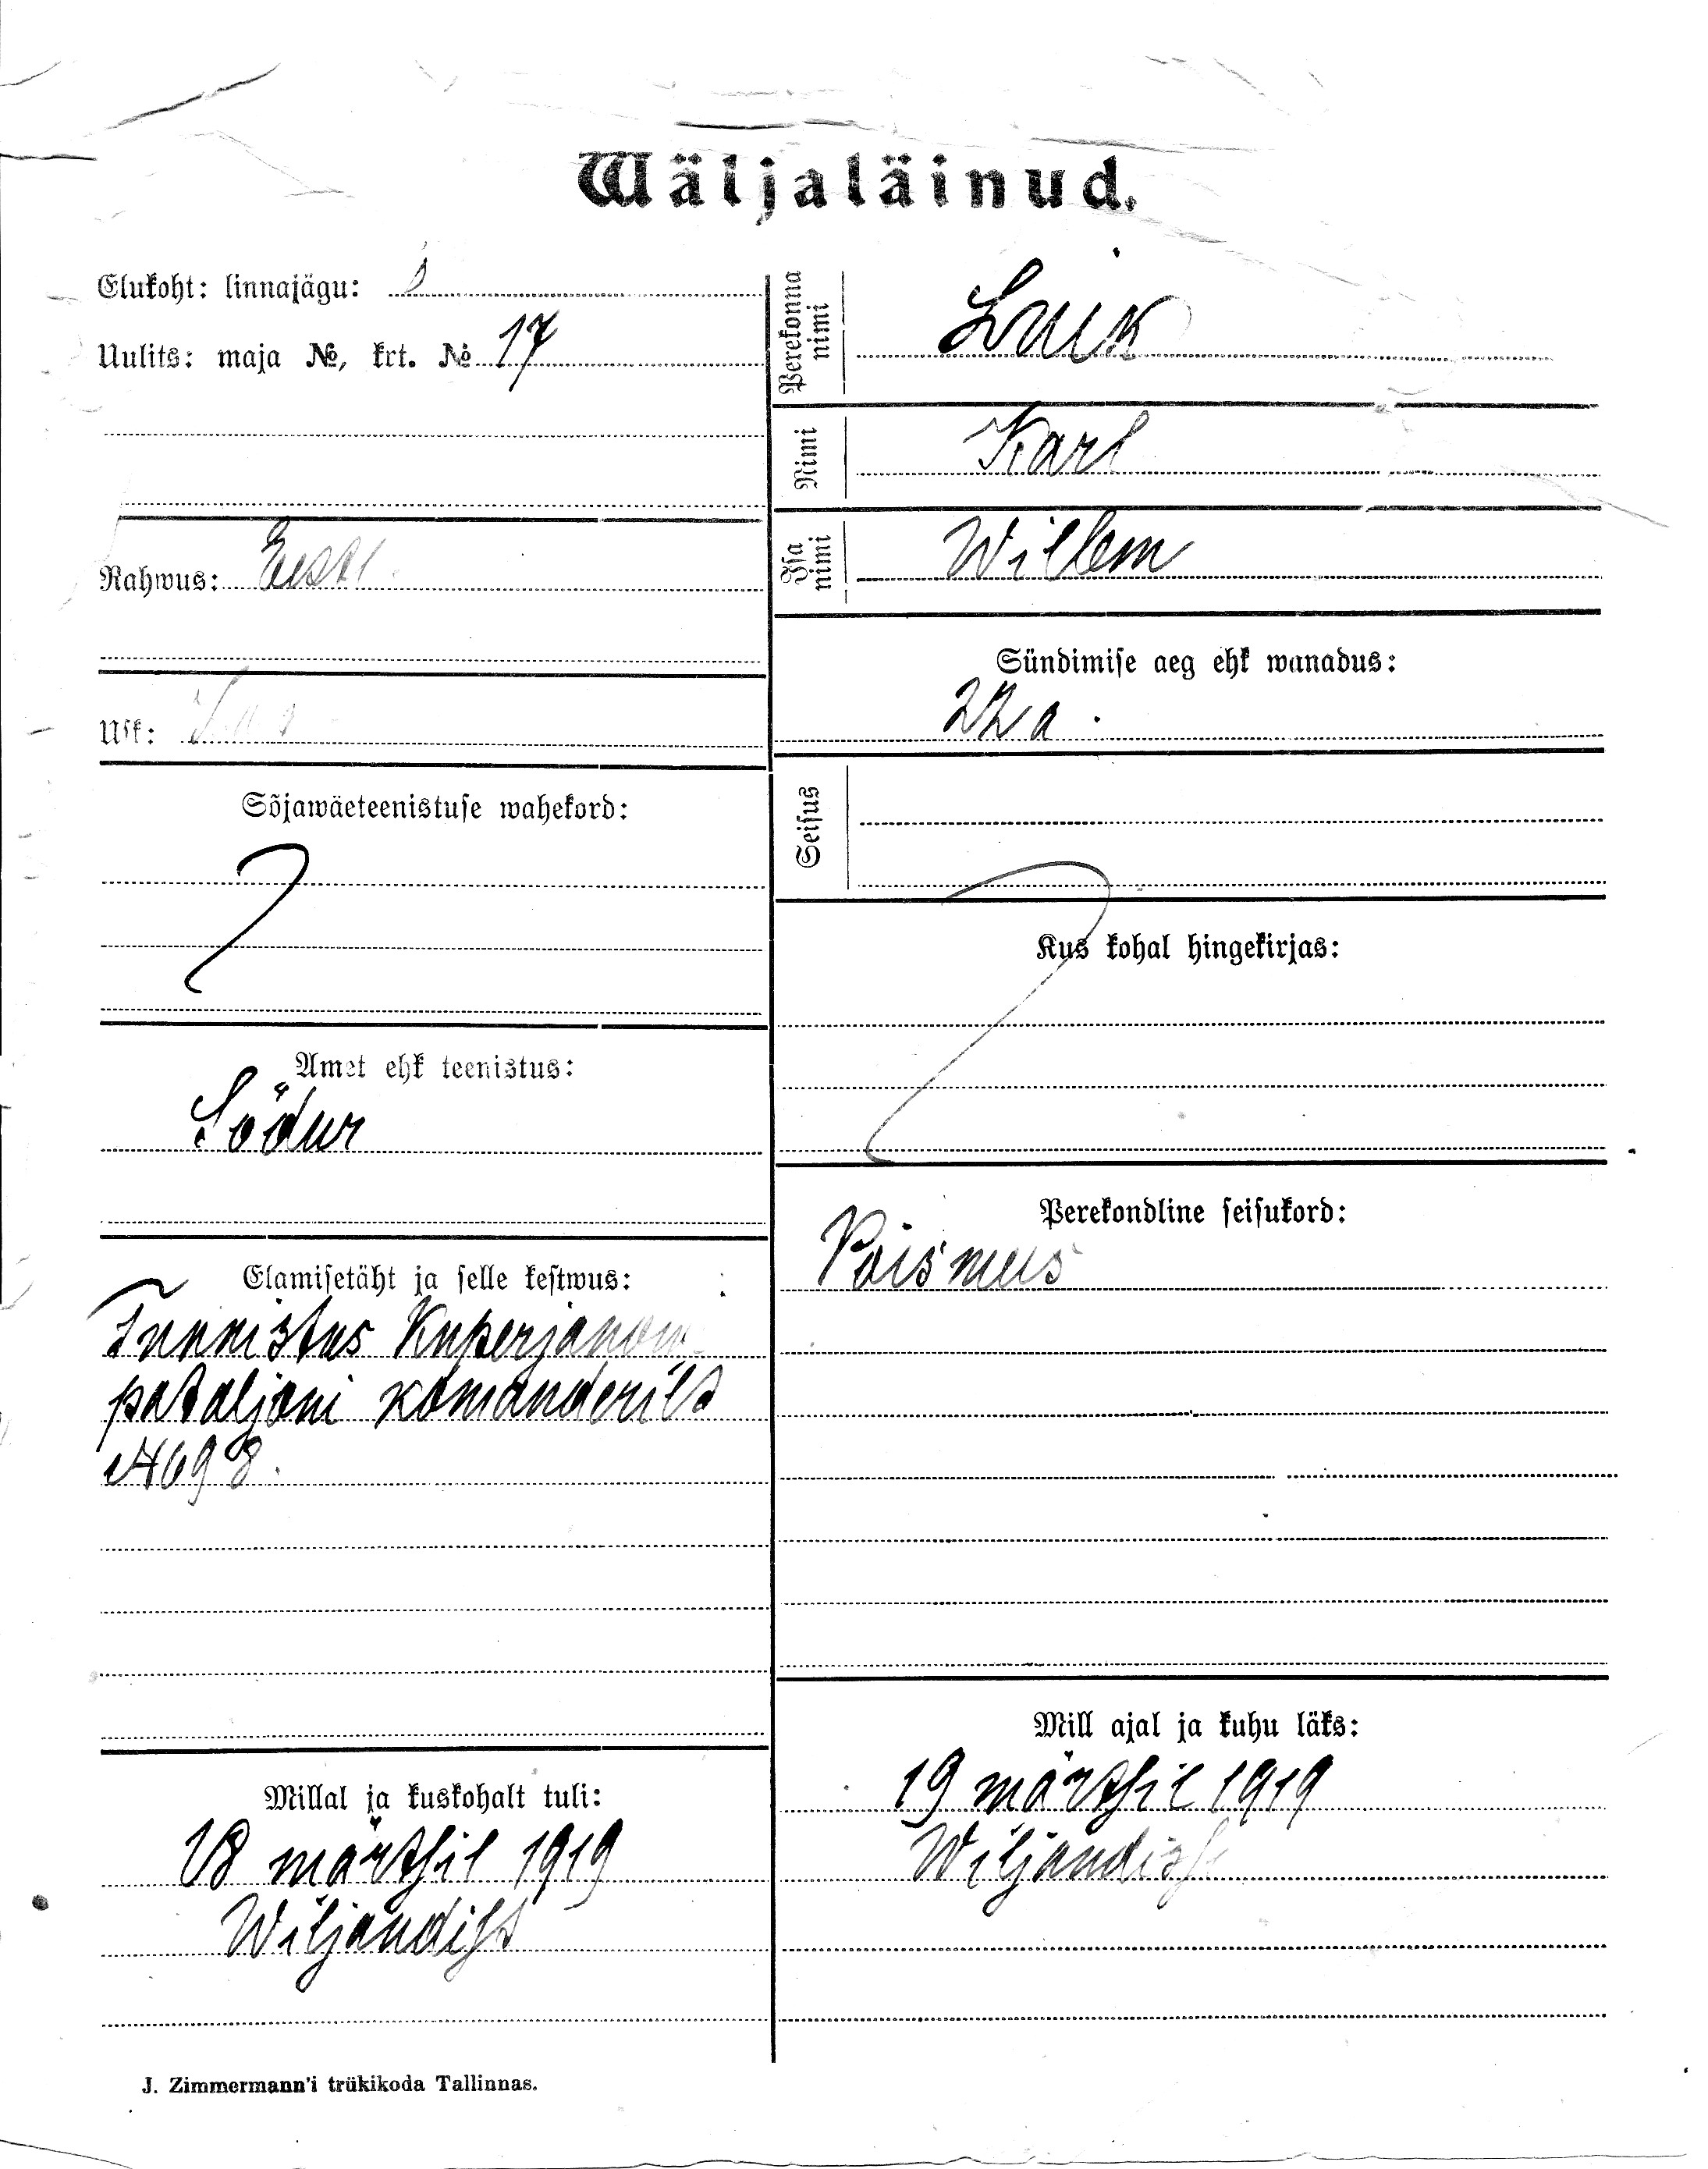 Wäljaläinud.
Elukoht: linnajägu:
Uulits: maja №, krt. № 17
Rahwus: Eesti
Usk:
Sõjawäeteenistuse wahekord:
Amet ehk teenistus:
Södur
Elamisetäht ja selle kestwus:
Tunnistus Kuperjanow
pataljoni komanderilt
№ 698.
Millal ja kuskohalt tuli:
18 märtsil 1919
Wiljandist
J. Zimmermann'i trükikoda Tallinnas.
Perekonna nimi Luik
Nimi Karl
Isa nimi Willem
Sündimise aeg ehk wanadus:
22 a.
Seisus
Kus kohal hingekirjas:
Perekondline seisukord:
Poismees
Mill ajal ja kuhu läks:
19 märtsil 1919